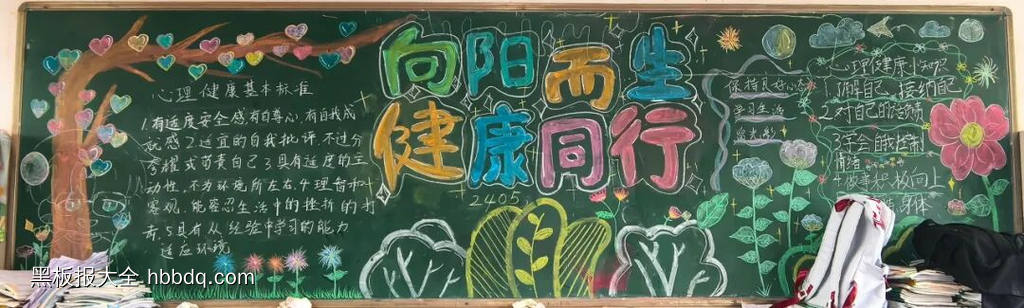 向阳而生
健康同行
2405
心理健康基本标准
1.有适度安全感有自尊心,有自我成
就感2适宜的自我批评,不过分
夸耀或苛责自己3具有适度的主
动性,不为环境所左右.4理智和
客观,能容忍生活中的挫折的打
击,5具有从经验中学习的能力
适应环境
保持良好心态
学习生活
心理健康小知识
1.了解自己、接纳自己
2.对自己的成绩
3.学会自我控制
情绪
积极向上
身体
黑板报大全 hbbdq.com